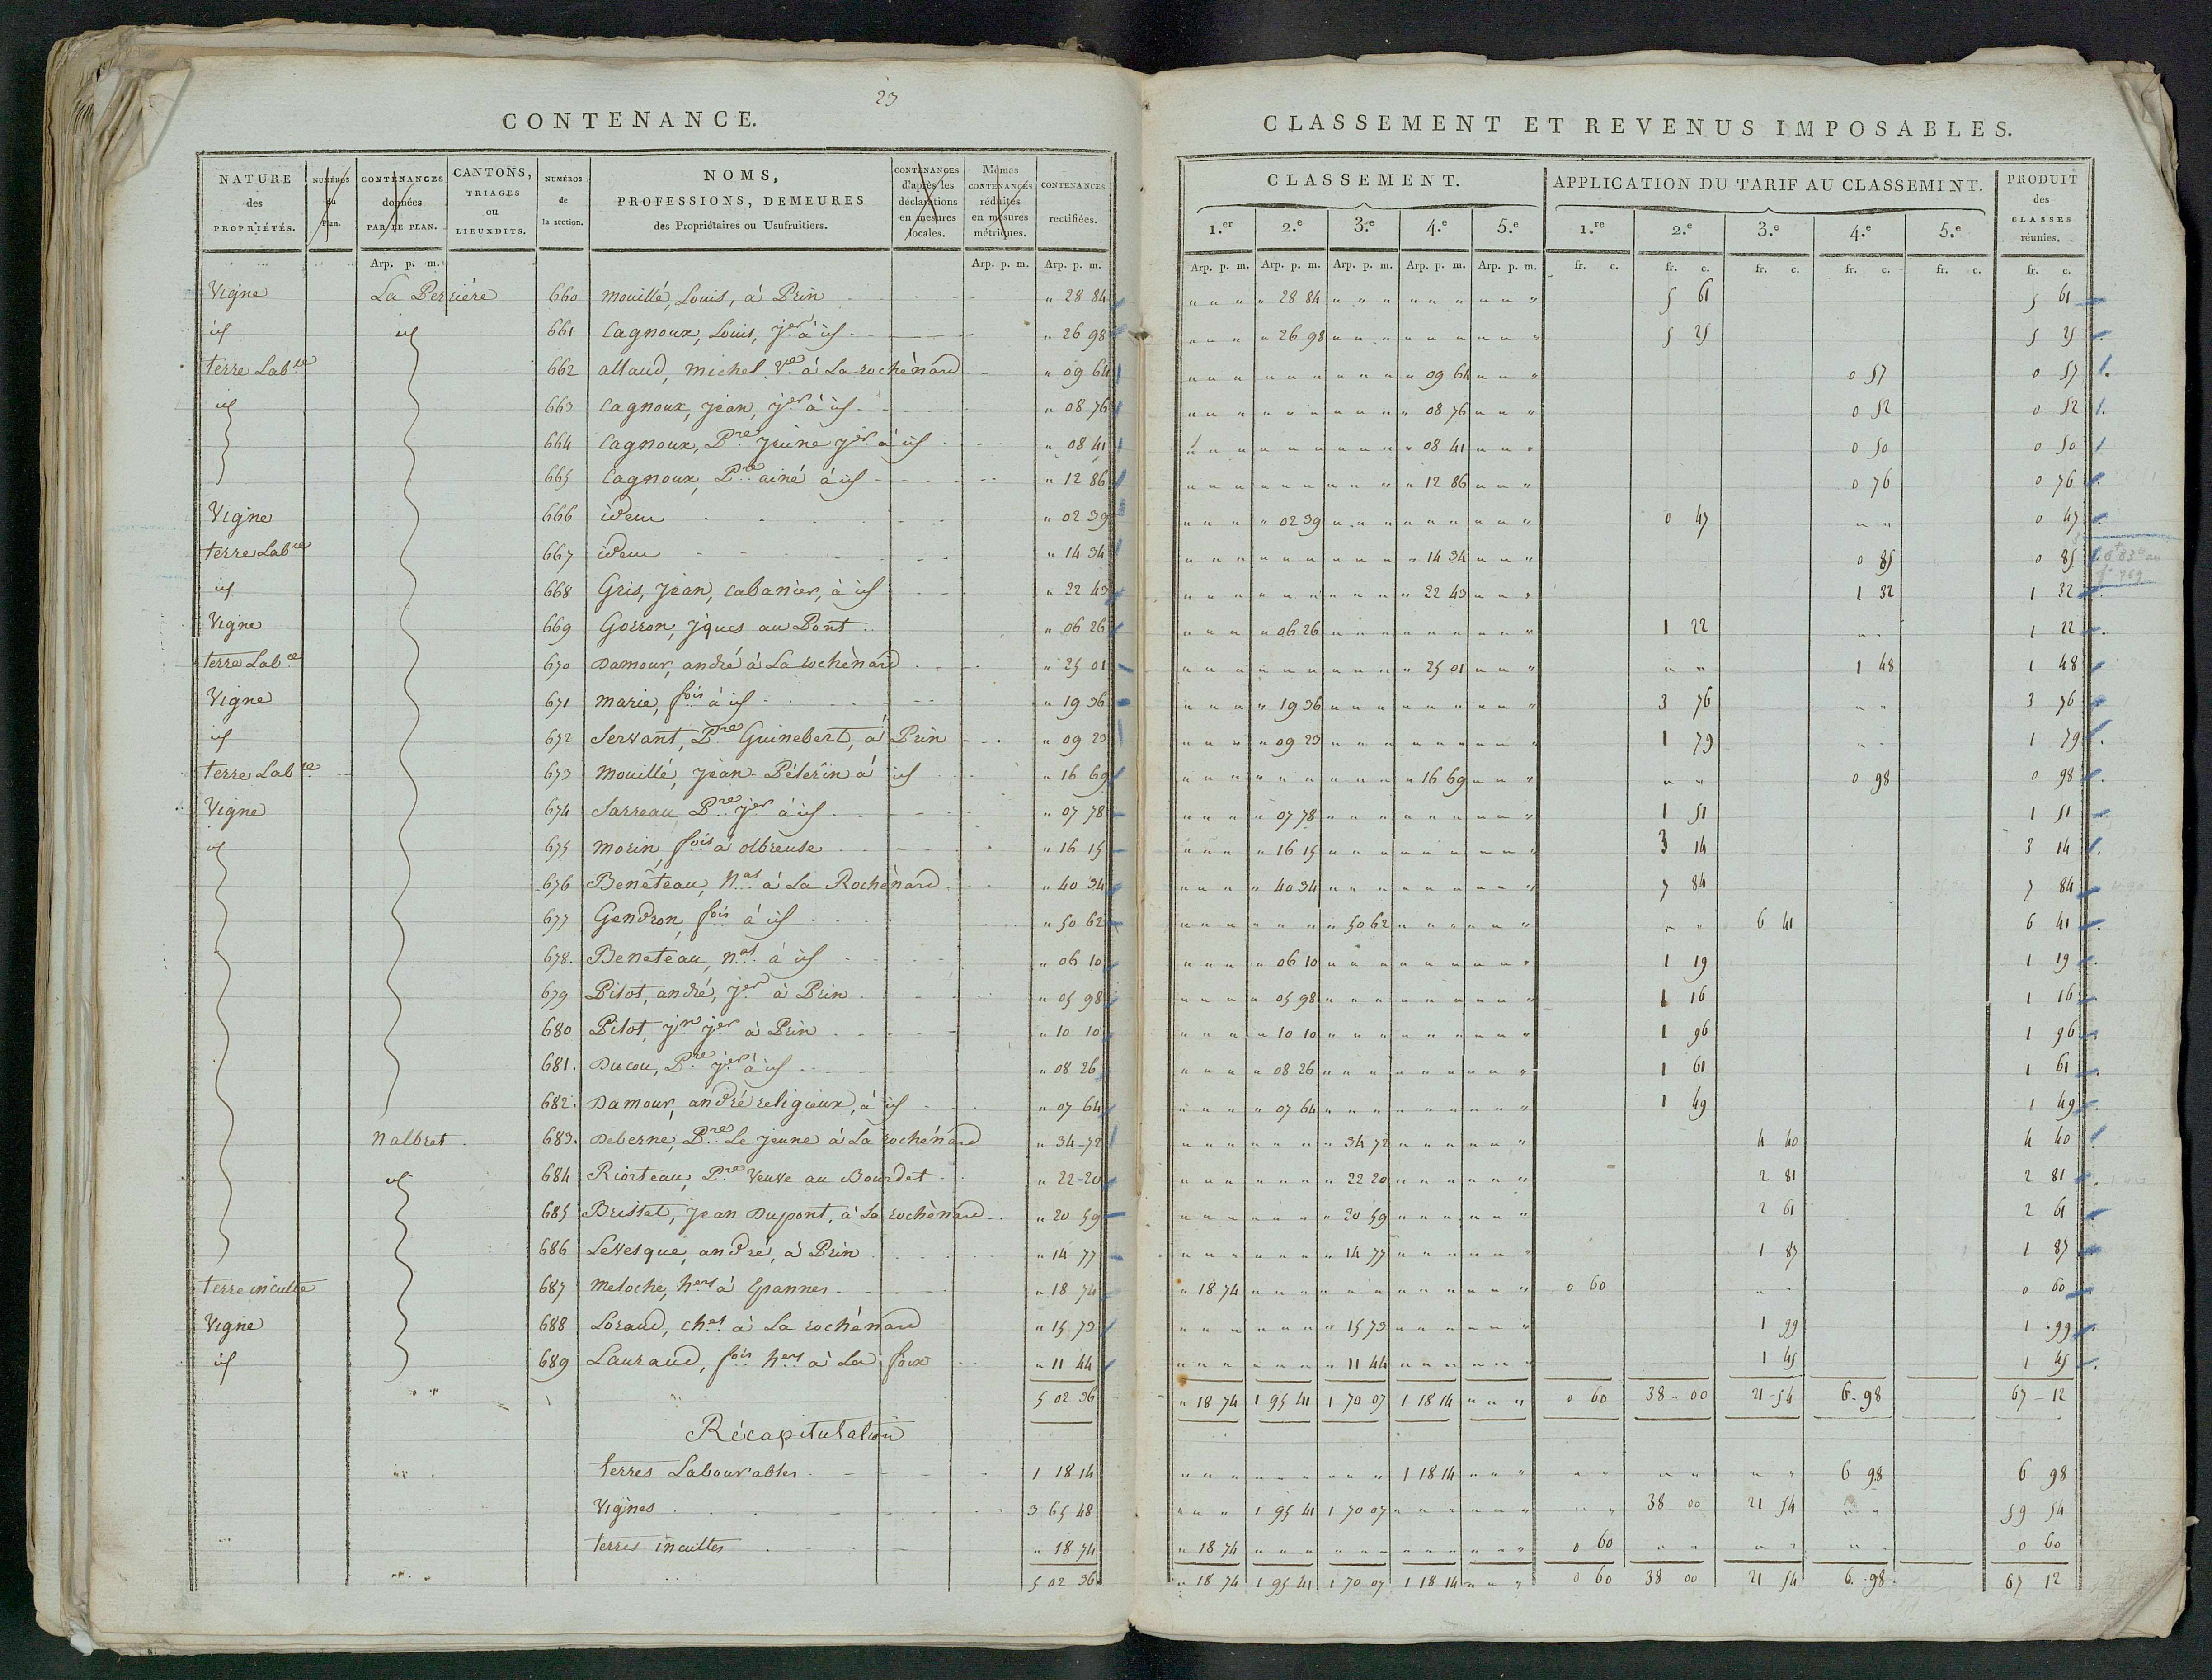 23
CONTENANCE.
CLASSEMENT ET REVENUS IMPOSABLES.
NATURE des PROPRIÉTÉS. NUMÉROS du Plan. CONTENANCES données PAR LE PLAN. CANTONS, TRIAGES ou LIEUXDITS. NUMÉROS de la section. NOMS, PROFESSIONS, DEMEURES des Propriétaires ou Usufruitiers. CONTENANCES d'après les déclarations en mesures locales. Mêmes CONTENANCES réduites en mesures métriques. CONTENANCES rectifiées.
CLASSEMENT. APPLICATION DU TARIF AU CLASSEMENT. PRODUIT des CLASSES réunies.
1.er 2.e 3.e 4.e 5.e 1.re 2.e 3.e 4.e 5.e
Arp. p. m. Arp. p. m. Arp. p. m. Arp. p. m. Arp. p. m. Arp. p. m. Arp. p. m. Arp. p. m. fr. c. fr. c. fr. c. fr. c. fr. c. fr. c.
Vigne La Perrière 660 Mouillé, Louis, à Prin " 28 84 " 28 84 5 61 5 61
id id 661 Cagnoux, Louis, jer à id " 26 98 " 26 98 5 25 5 25
terre Lable 662 allaud, michel Ve à La rochènard " 09 64 " 09 64 0 57 0 57
id 663 Cagnoux, jean, jer à id " 08 76 " 08 76 0 52 0 52
664 Cagnoux, Pre jeune jer à id " 08 41 " 08 41 0 50 0 50
665 Cagnoux, Pre ainé à id " 12 86 " 12 86 0 76 0 76
Vigne 666 idem " 02 39 " 02 39 0 47 " " 0 47
terre Lable 667 idem " 14 34 " 14 34 0 85 0 85
id 668 Gris, jean, cabanier, à id " 22 43 " 22 43 1 32 1 32
Vigne 669 Gorron, jques au Pont " 06 26 " 06 26 1 22 " " 1 22
terre Lable 670 Damour, andré à La rochènard " 25 01 " 25 01 " " 1 48 1 48
Vigne 671 marie, fois à id " 19 36 " 19 36 3 76 " " 3 76
id 672 Servant, Pre Guinebert, à Prin " 09 23 " 09 23 1 79 " " 1 79
terre Lable 673 Mouillé, jean-Pélerin à id " 16 69 " 16 69 " " 0 98 0 98
Vigne 674 Sarreau, Pre jer à id " 07 78 " 07 78 1 51 1 51
id 675 morin, fois à olbreuse " 16 15 " 16 15 3 14 3 14
676 Benêteau, Nas à La Rochènard " 40 34 " 40 34 7 84 7 84
677 Gendron, fois à id " 50 62 " 50 62 " " 6 41 6 41
678. Beneteau, nas à id " 06 10 " 06 10 1 19 1 19
679 Pilot, andré, jer à Prin " 05 98 " 05 98 1 16 1 16
680 Pilot, jn jer à Prin " 10 10 " 10 10 1 96 1 96
681. Ducou, Pre jer à id " 08 26 " 08 26 1 61 1 61
682. Damour, andré religieux, à id " 07 64 " 07 64 1 49 1 49
nalbret 683. Deberne, Pre Le jeune à La rochénard " 34-72 " 34 72 4 40 4 40
id 684 Riorteau, Pre Veuve au Bourdet " 22-20 " 22 20 2 81 2 81
685 Brisset, jean Dupont, à La rochènard " 20 59 " 20 59 2 61 2 61
686 Levesque, andré, à Prin " 14 77 " 14 77 1 87 1 87
terre inculte 687 Meloche, hers à Epannes " 18 74 " 18 74 0 60 " " 0 60
Vigne 688 Loraud, ches à La rochénard " 15 73 " 15 73 1 99 1 99
id 689 Lauraud, fois hers à La foix " 11 44 " 11 44 1 45 1 45
5 02 36 " 18 74 1 95 41 1 70 07 1 18 14 " " " 0 60 38-00 21-54 6-98 67-12
Récapitulation
terres Labourables 1 18 14 1 18 14 6 98 6 98
Vignes 3 65 48 1 95 41 1 70 07 38 00 21 54 59 54
terres incultes " 18 74 " 18 74 0 60 0 60
5 02 36 " 18 74 1 95 41 1 70 07 1 18 14 " " " 0 60 38 00 21 54 6-98 67 12